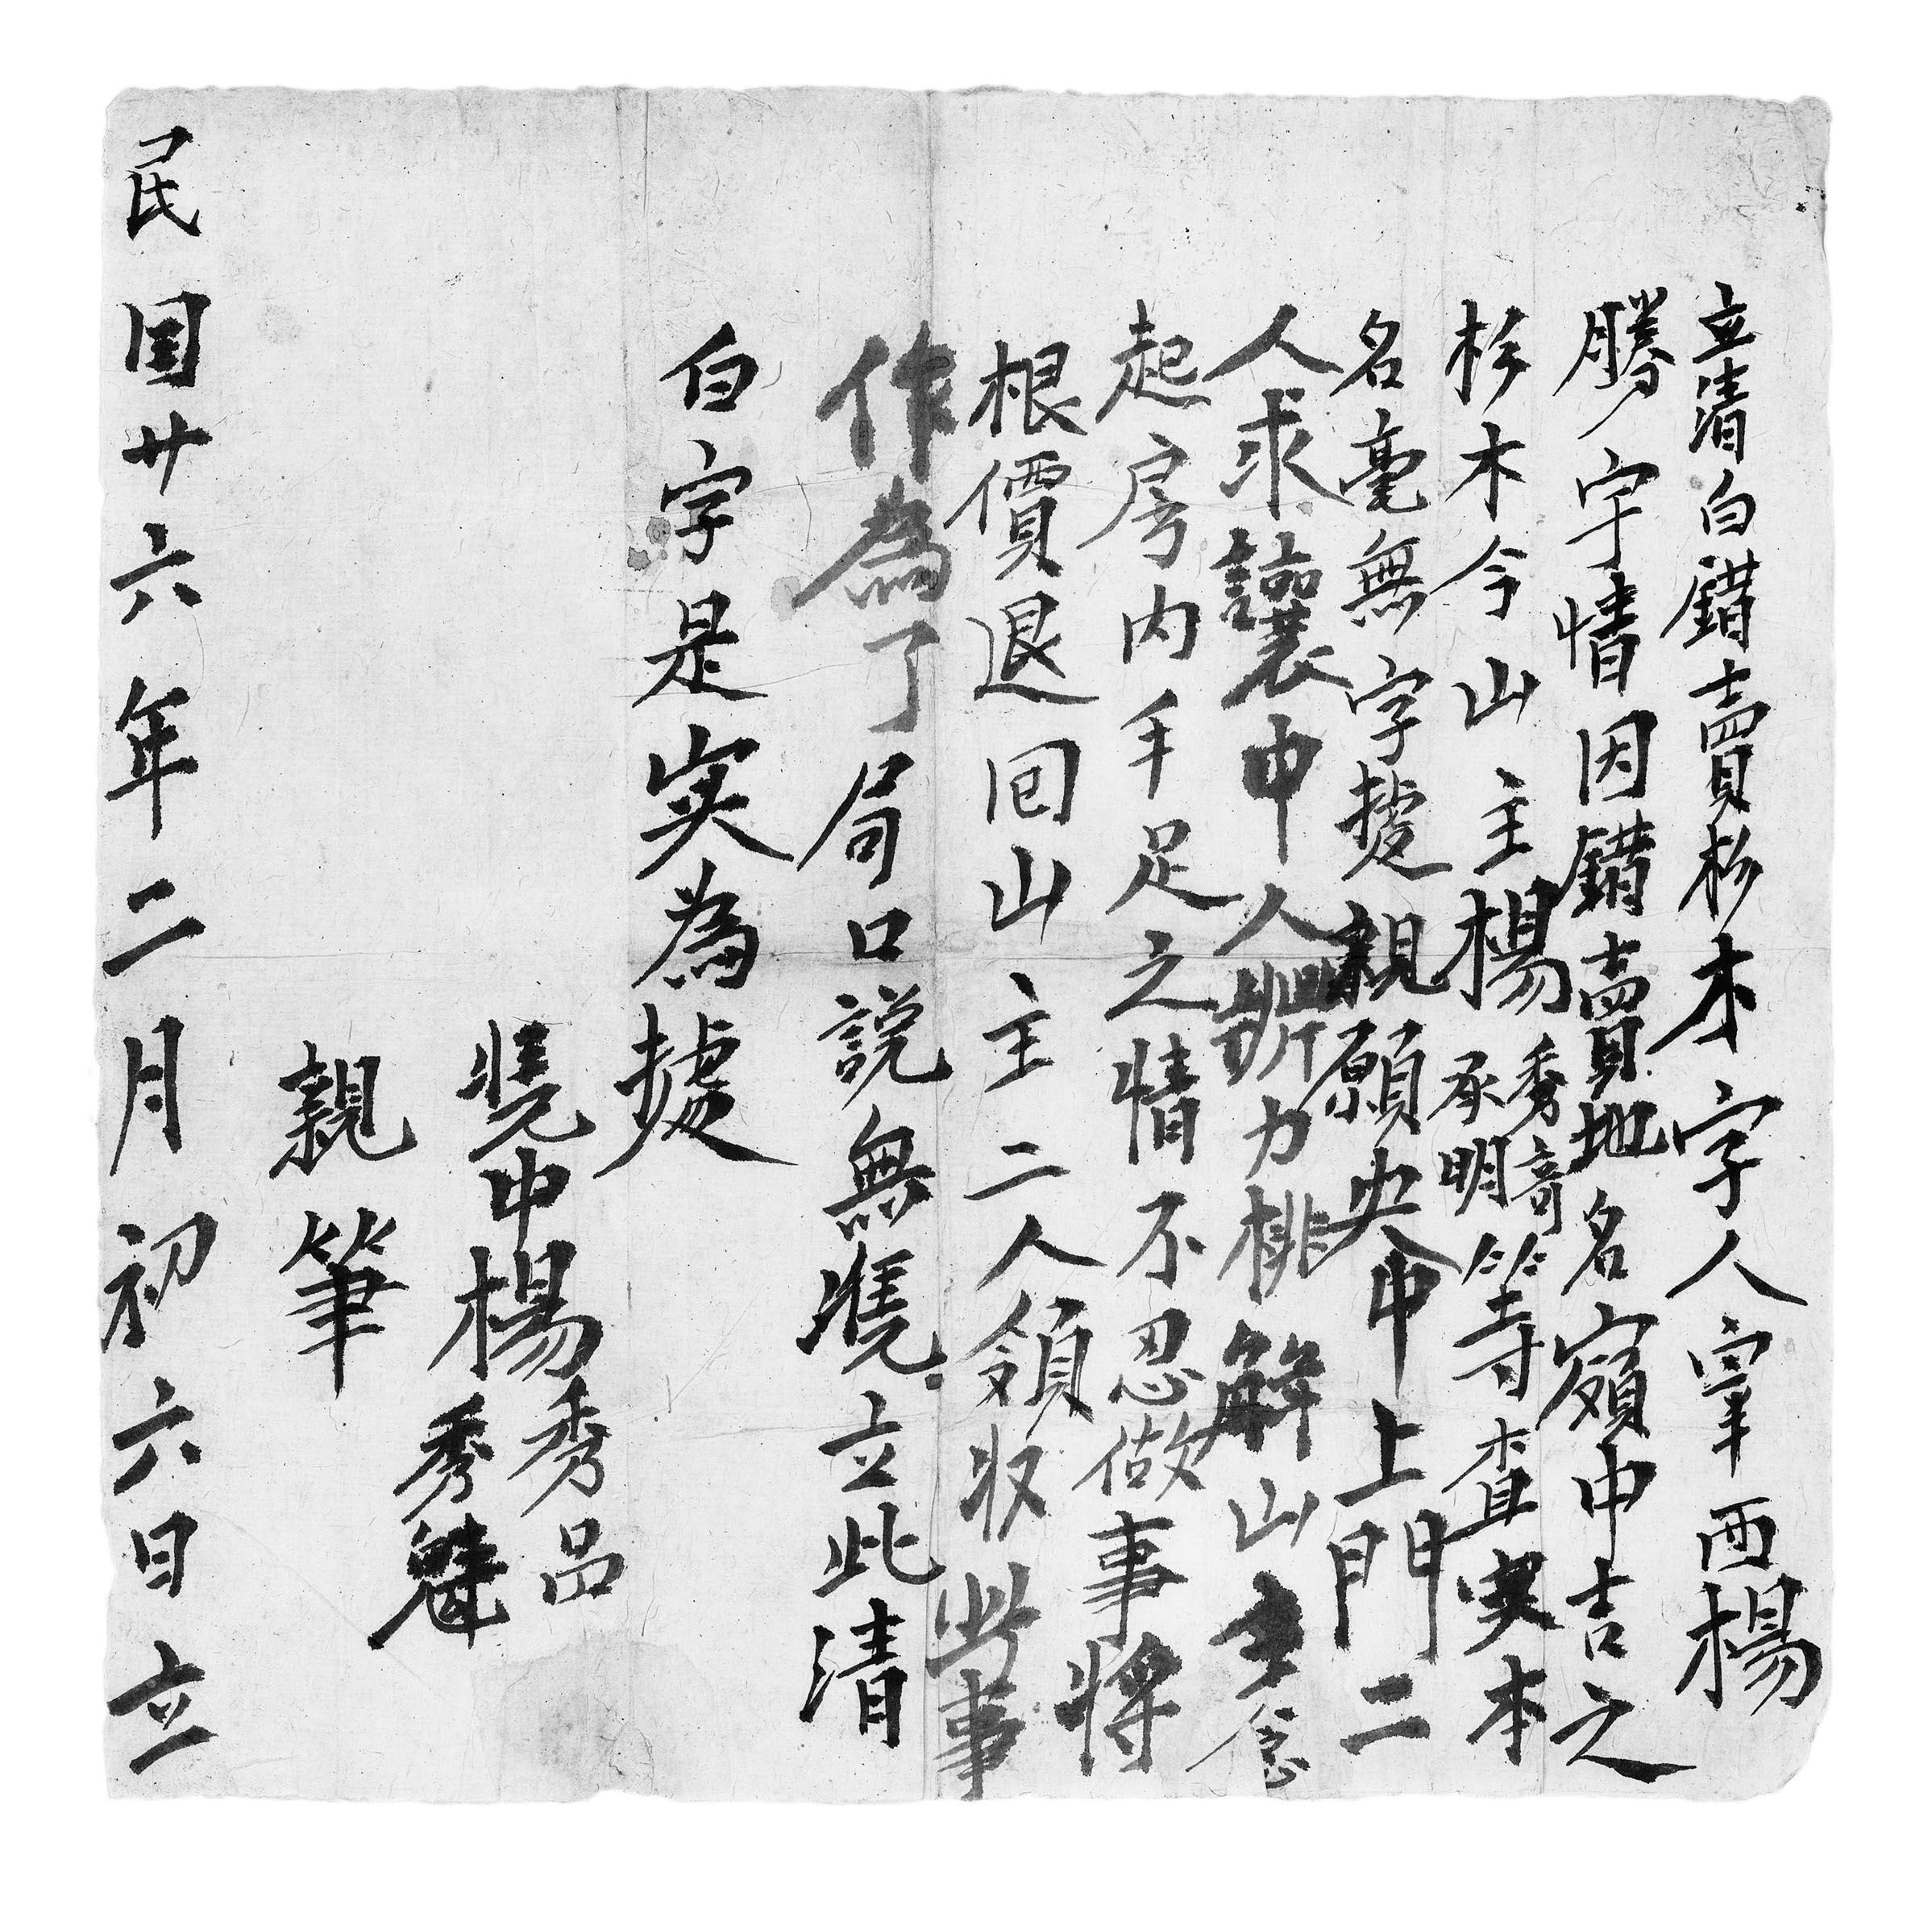 立清白錯賣杉木字人宰西楊
勝宇情因錯賣地名嶺申吉之
杉木今山主楊秀奇承明等查実本
名毫無字據親願央中上門二
人求讓中人辦力排解山主念
起房内手足之情不忍做事將
根價退回山主二人領収此事
作為了局口説無憑立此清
白字是实為據
憑中楊秀品秀魁
親筆
民国廿六年二月初六日立